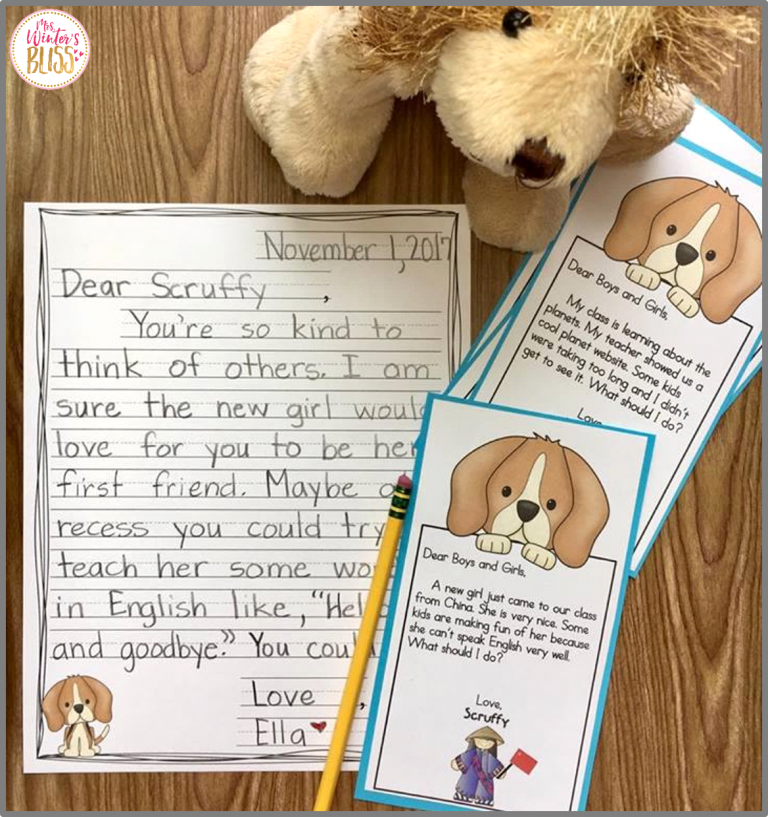 Mrs.
Winter's
BLISS
November 1, 2017
Dear Scruffy,
You're so kind to
think of others. I am
sure the new girl
love for you to be
first friend. Maybe
recess you could try
teach her some
in English like, "
and goodbye." You
Love,
Ella
Dear Boys and Girls,
My class is learning about the
planets. My teacher showed us a
cool planet website. Some kids
were taking too long and I didn't
get to see it. What should I do?
Love,
Dear Boys and Girls,
A new girl just came to our class
from China. She is very nice. Some
kids are making fun of her because
she can't speak English very well.
What should I do?
Love,
Scruffy